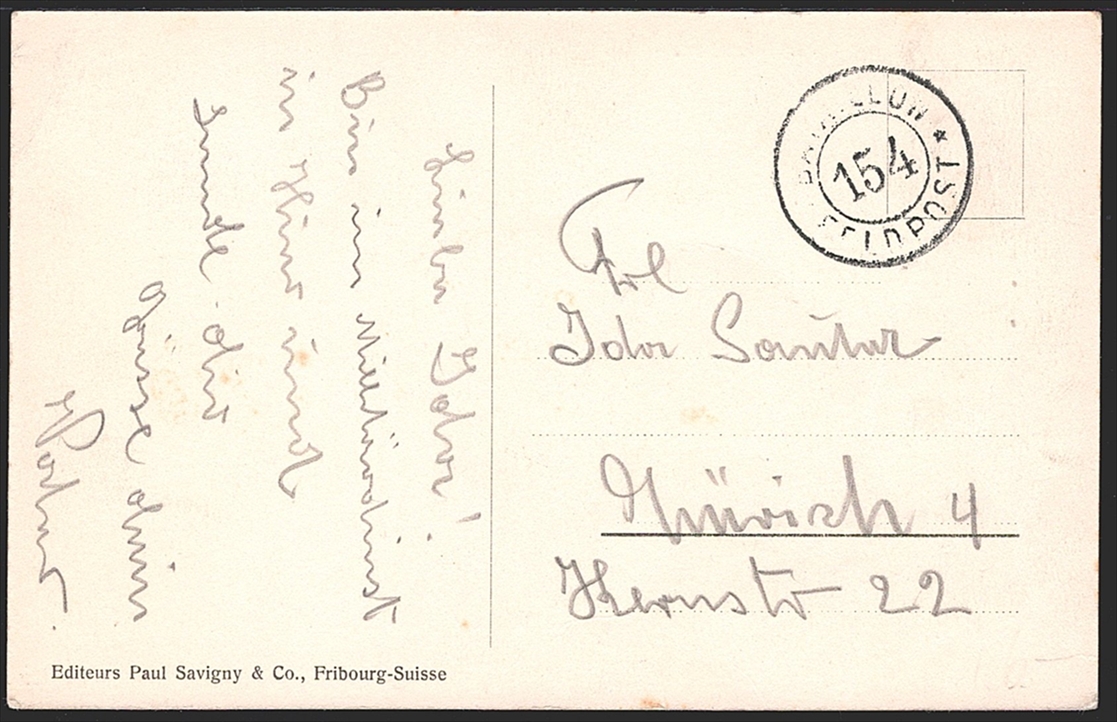 Liebe Ida!
Bin im Militärdienst
in Chur und
sende dir
Grüsse dein
BATAILLON * FELDPOST
154
Frl
Ida Sauter
Zürich 4
Kernstr 22
Editeurs Paul Savigny & Co., Fribourg-Suisse